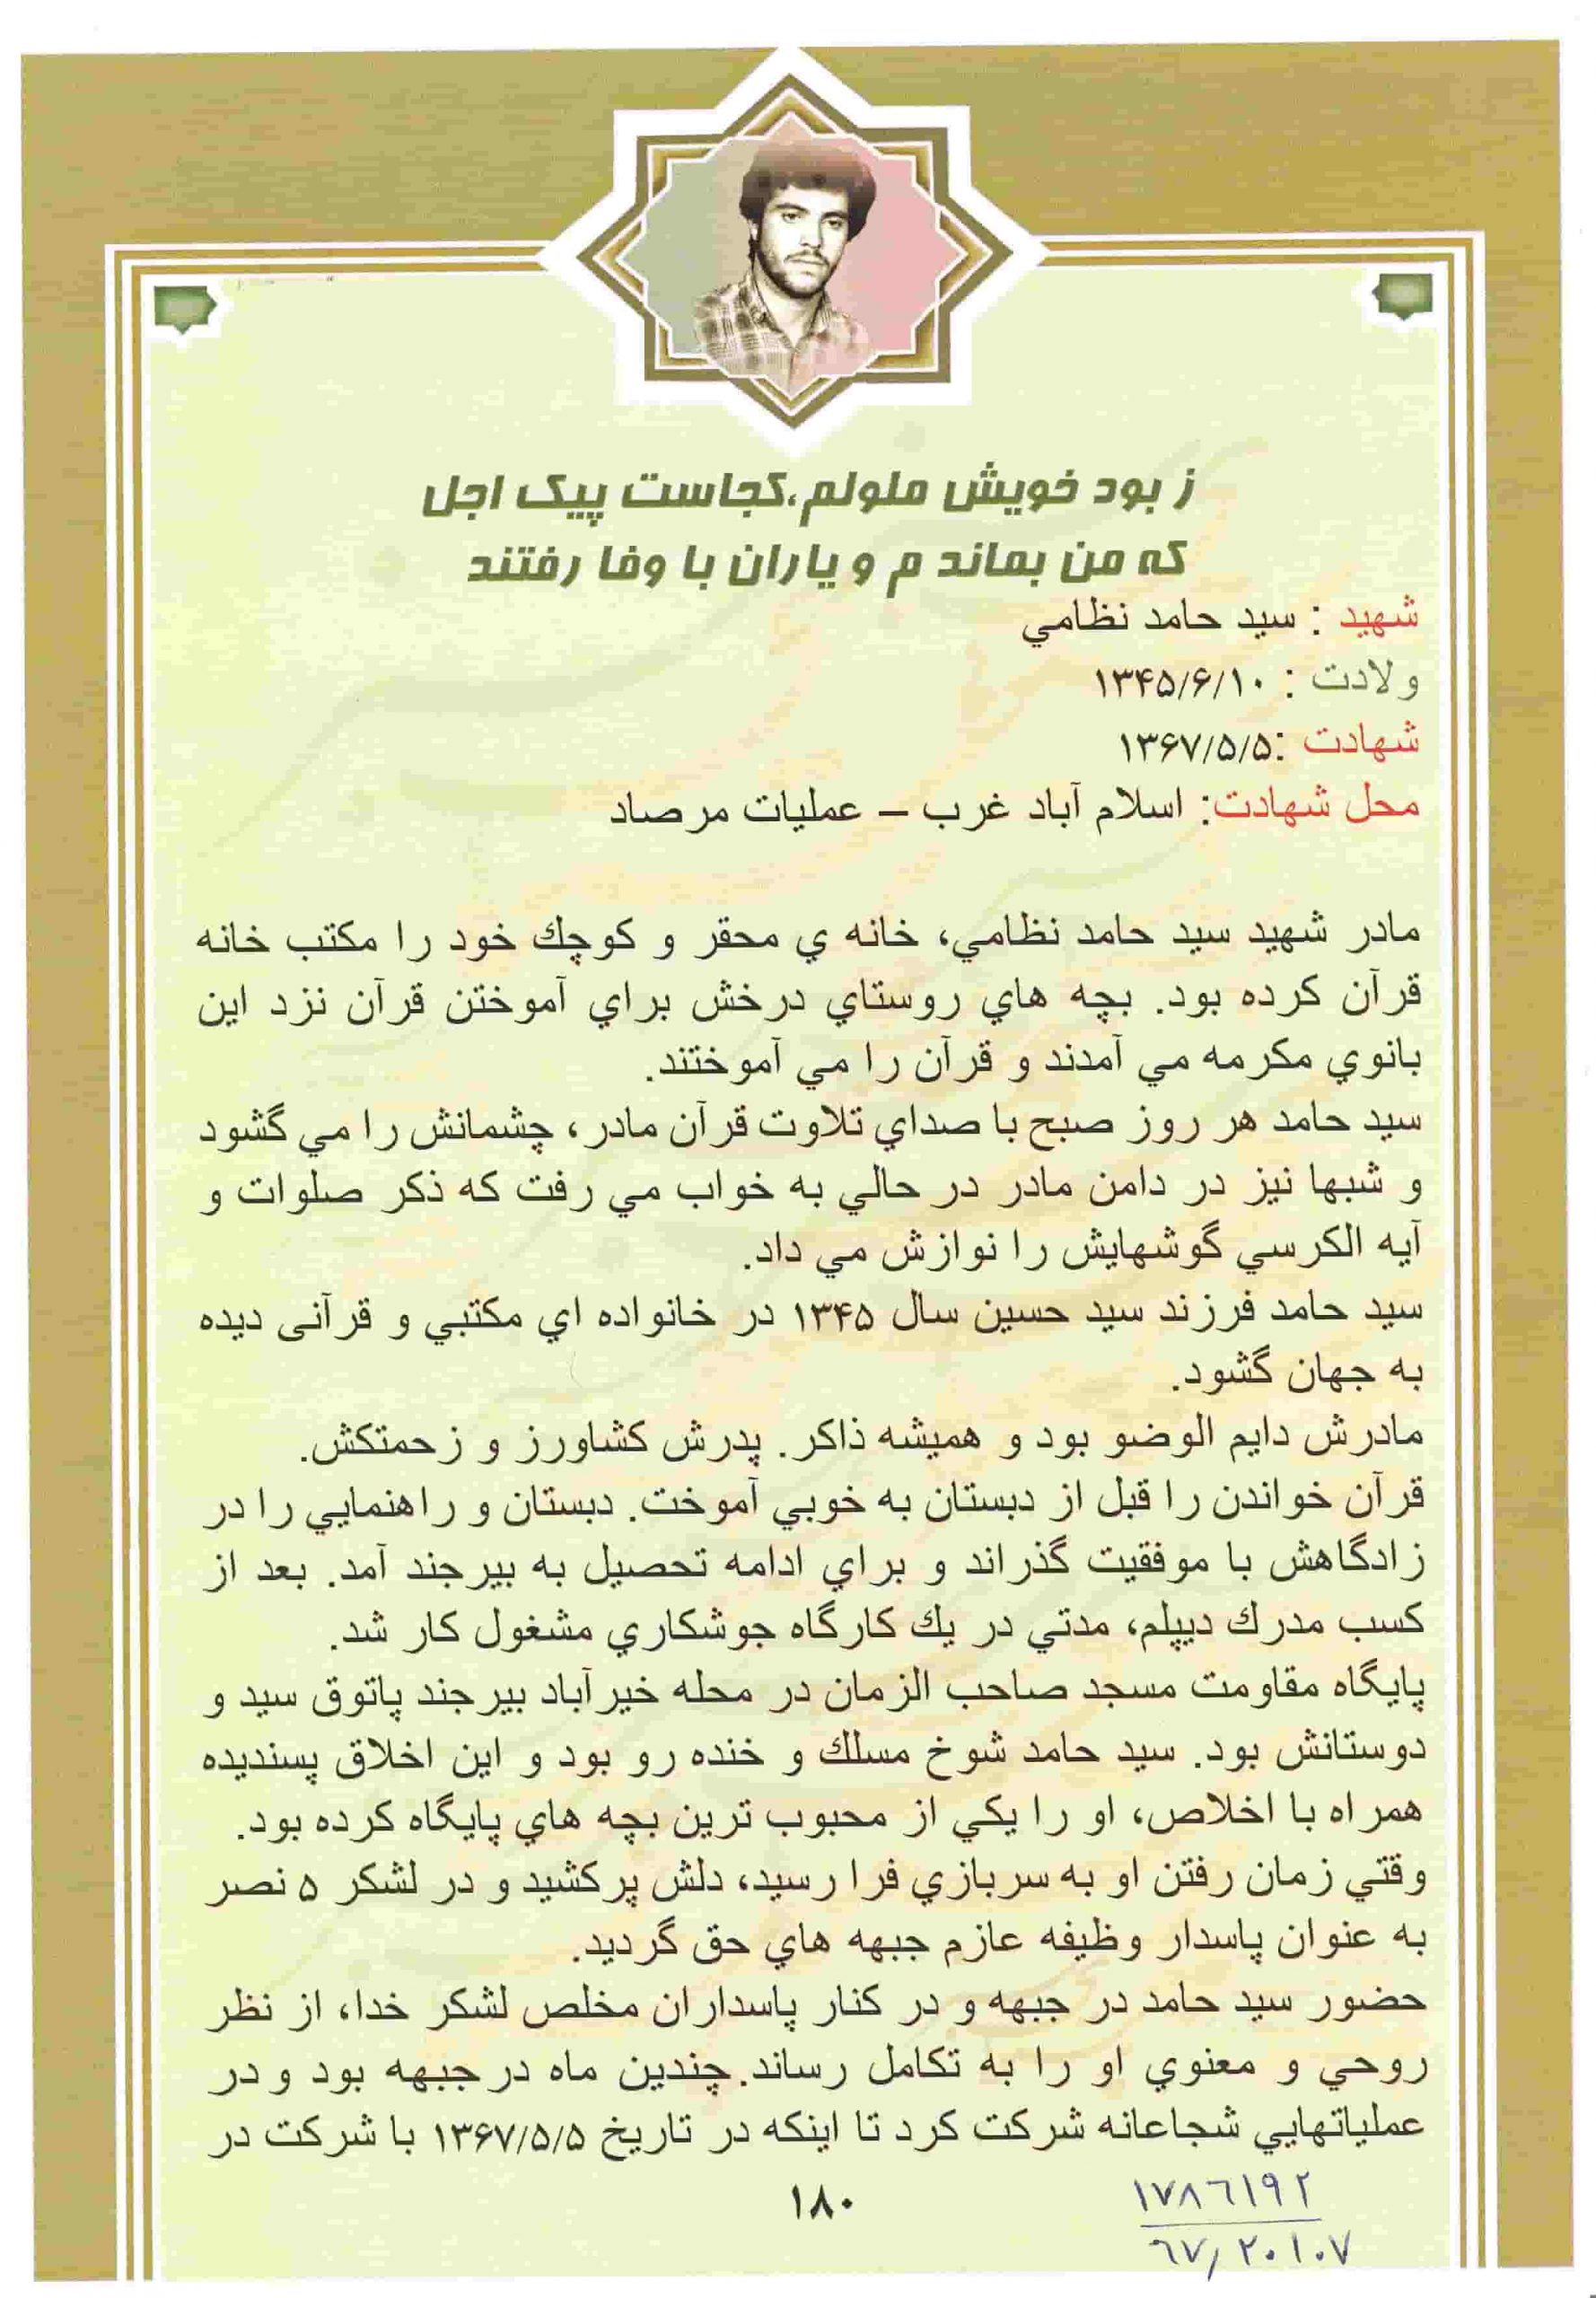 ز بود خویش ملولم،کجاست پیک اجل
که من بماند م و یاران با وفا رفتند
شهيد : سيد حامد نظامي
ولادت : ۱۳۴۵/۶/۱۰
شهادت :۱۳۶۷/۵/۵
محل شهادت: اسلام آباد غرب – عمليات مرصاد
مادر شهيد سيد حامد نظامي، خانه ي محقر و كوچك خود را مكتب خانه
قرآن كرده بود. بچه هاي روستاي درخش براي آموختن قرآن نزد اين
بانوي مكرمه مي آمدند و قرآن را مي آموختند.
سيد حامد هر روز صبح با صداي تلاوت قرآن مادر، چشمانش را مي گشود
و شبها نيز در دامن مادر در حالي به خواب مي رفت كه ذكر صلوات و
آيه الكرسي گوشهايش را نوازش مي داد.
سيد حامد فرزند سيد حسين سال ۱۳۴۵ در خانواده اي مكتبي و قرآنی ديده
به جهان گشود.
مادرش دايم الوضو بود و هميشه ذاكر. پدرش كشاورز و زحمتكش.
قرآن خواندن را قبل از دبستان به خوبي آموخت. دبستان و راهنمايي را در
زادگاهش با موفقيت گذراند و براي ادامه تحصيل به بيرجند آمد. بعد از
كسب مدرك ديپلم، مدتي در يك كارگاه جوشكاري مشغول كار شد.
پايگاه مقاومت مسجد صاحب الزمان در محله خيرآباد بيرجند پاتوق سيد و
دوستانش بود. سيد حامد شوخ مسلك و خنده رو بود و اين اخلاق پسنديده
همراه با اخلاص، او را يكي از محبوب ترين بچه هاي پايگاه كرده بود.
وقتي زمان رفتن او به سربازي فرا رسيد، دلش پركشيد و در لشكر ۵ نصر
به عنوان پاسدار وظيفه عازم جبهه هاي حق گرديد.
حضور سيد حامد در جبهه و در كنار پاسداران مخلص لشكر خدا، از نظر
روحي و معنوي او را به تكامل رساند.چندين ماه در جبهه بود و در
عملياتهايي شجاعانه شركت كرد تا اينكه در تاريخ ۱۳۶۷/۵/۵ با شركت در
۱۸۰
۱۷۸٦۱۹۲
٦۷/۲۰۱۰۷